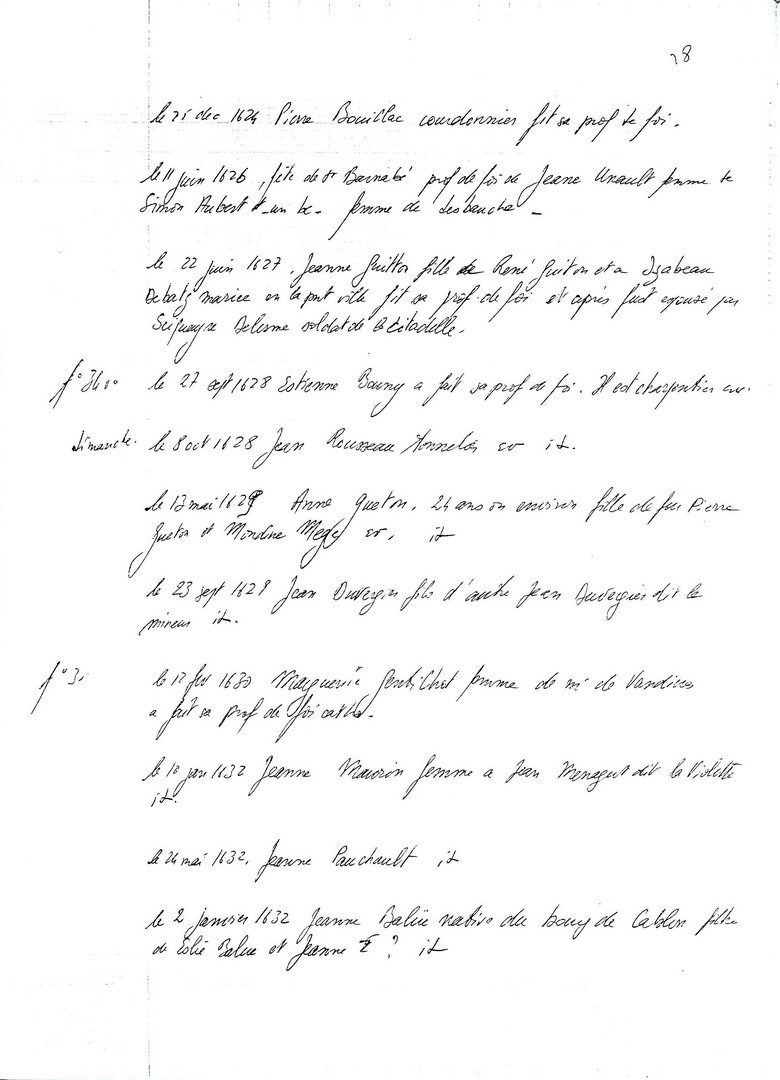 28
le 25 dec 1624 Pierre Bouillac courdonnier fit sa prof de foi.
le 11 juin 1626, fête de st Barnabé prof de foi de Jeane Unault femme de
Simon Aubert femme de desbauche -
le 22 juin 1627, Jeanne Guitton fille de René Guiton et a Izabeau
Debatz mariée en la pnt ville fit sa prof de foi et après fust epousé par
Delerme soldat de la citadelle.
f°
le 27 sept 1628 Estienne Bouny a fait sa prof de foi. Il est charpentier
dimanche. le 8 oct 1628 Jean Rousseau it.
le 13 mai 1629 Anne Gueton, 24 ans ou environ fille de feu Pierre
Gueton et Mondine Mege it
le 23 sept 1629 Jean Duvergier fils d'autre Jean Duvergier dit le
mineur it.
f° 3
le 12 fev 1630 Marguerite Gentilhet femme de mr de Vandires
a fait sa prof de foi catho.
le 10 jan 1632 Jeanne Mauron femme a Jean Menagut dit la Violette
it.
le 24 mai 1632, Jeanne Pauchault it
le 2 janvier 1632 Jeanne Balüe native du bourg de Cablon fille
de Eslie Balue et Jeanne ? it